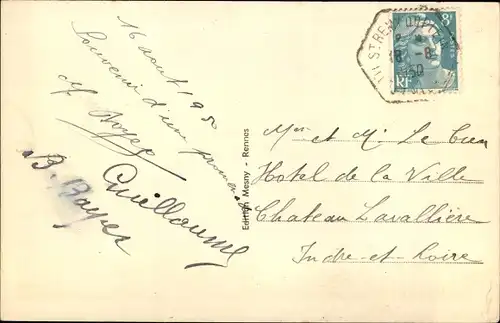 16 aout 1950
Souvenir d'une promenade
M Boyer
Guillaume
B. Boyer
Edition Mesny - Rennes
ST REMY
18 -8
1950
8F
RF
Mme et M. Le Cien
Hotel de la Ville
Chateau Lavallière
Indre-et-Loire